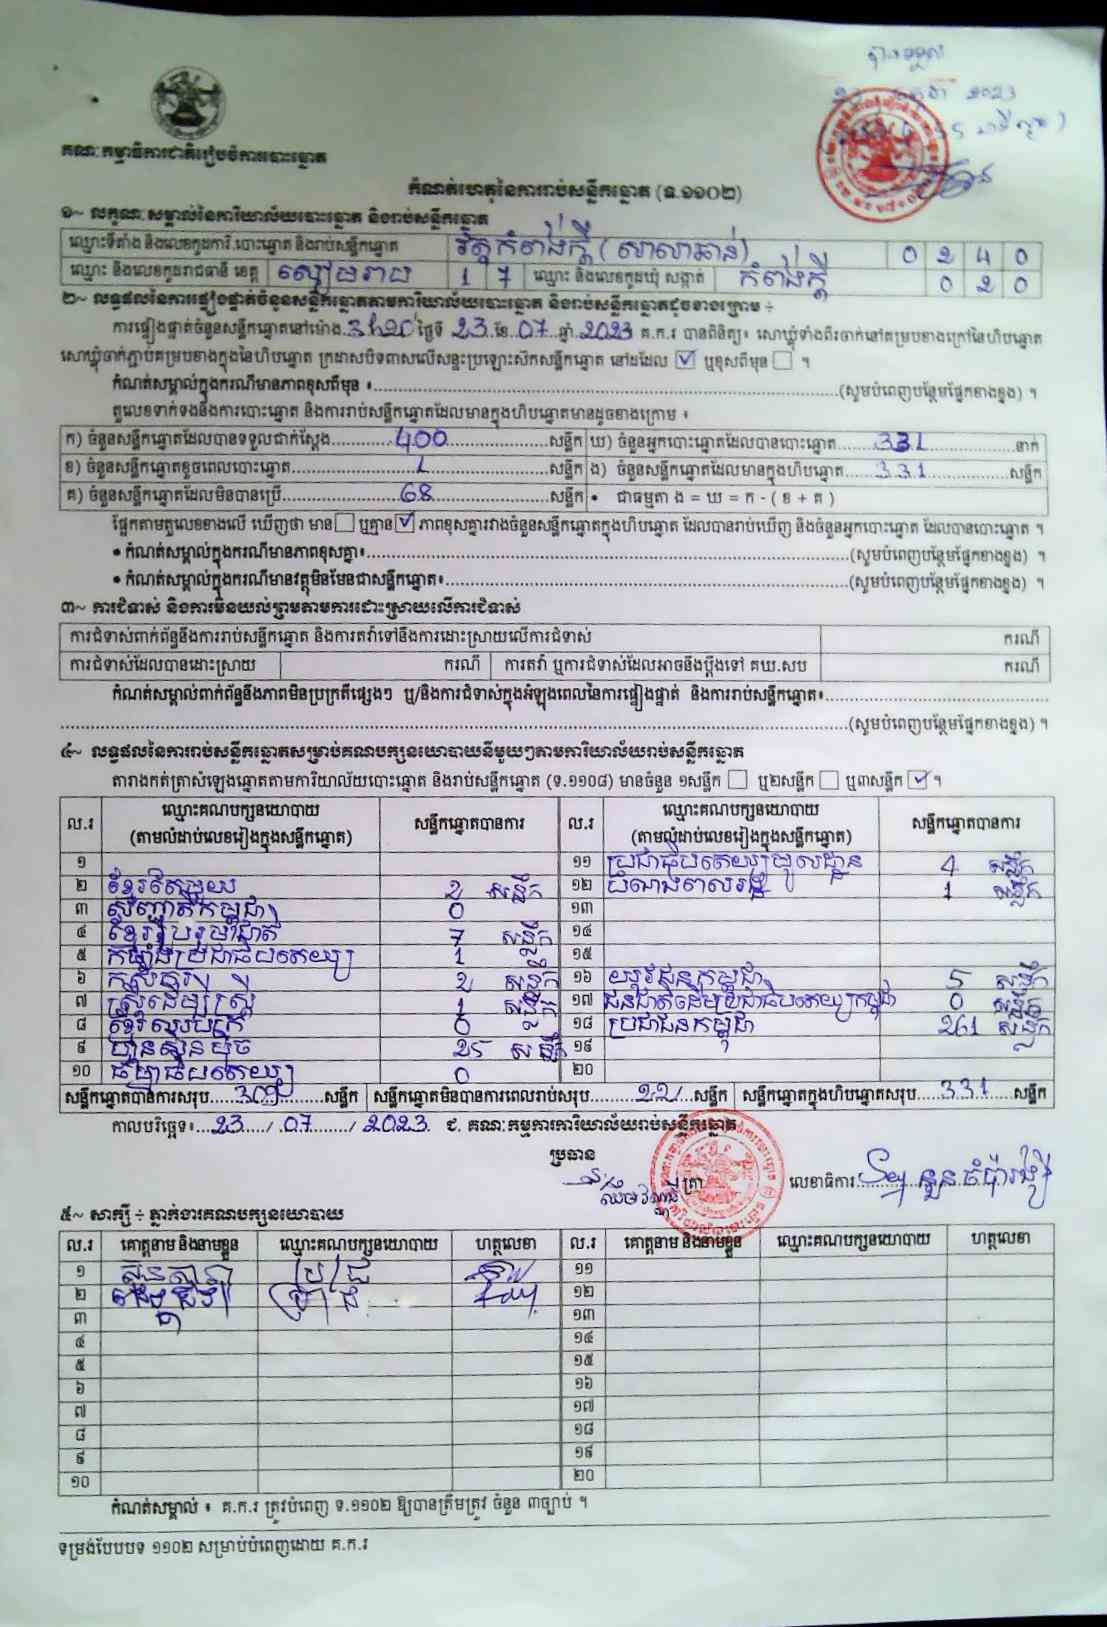 បានទទួល
2023
គណៈកម្មាធិការជាតិរៀបចំការបោះឆ្នោត
កំណត់ហេតុនៃការរាប់សន្លឹកឆ្នោត (ទ.១១០២)
១~ លក្ខណៈសម្គាល់នៃការិយាល័យបោះឆ្នោត និងរាប់សន្លឹកឆ្នោត
ឈ្មោះទីតាំង និងលេខកូដការិ.បោះឆ្នោត និងរាប់សន្លឹកឆ្នោត វត្តកំពង់ក្តី (សាលាឆាន់) 0 2 4 0
ឈ្មោះ និងលេខកូដរាជធានី ខេត្ត សៀមរាប 1 7 ឈ្មោះ និងលេខកូដឃុំ សង្កាត់ កំពង់ក្តី 0 2 0
២~ លទ្ធផលនៃការផ្ទៀងផ្ទាត់ចំនួនសន្លឹកឆ្នោតតាមការិយាល័យបោះឆ្នោត និងរាប់សន្លឹកឆ្នោតដូចខាងក្រោម ÷
ការផ្ទៀងផ្ទាត់ចំនួនសន្លឹកឆ្នោតនៅម៉ោង 3h20 ថ្ងៃទី 23 ខែ 07 ឆ្នាំ 2023 គ.ក.រ បានពិនិត្យ៖ សោឃ្លុំទាំងពីរចាក់នៅគម្របខាងក្រៅនៃហិបឆ្នោត
សោឃ្លុំចាក់ភ្ជាប់គម្របខាងក្នុងនៃហិបឆ្នោត ក្រដាសបិទពាសលើសន្ទះប្រឡោះស៊កសន្លឹកឆ្នោត នៅដដែល ☑ ឬខុសពីមុន ☐ ។
កំណត់សម្គាល់ក្នុងករណីមានភាពខុសពីមុន ៖ (សូមបំពេញបន្ថែមផ្នែកខាងខ្នង) ។
តួលេខទាក់ទងនឹងការបោះឆ្នោត និងការរាប់សន្លឹកឆ្នោតដែលមានក្នុងហិបឆ្នោតមានដូចខាងក្រោម ៖
ក) ចំនួនសន្លឹកឆ្នោតដែលបានទទួលជាក់ស្តែង 400 សន្លឹក ឃ) ចំនួនអ្នកបោះឆ្នោតដែលបានបោះឆ្នោត 331 នាក់
ខ) ចំនួនសន្លឹកឆ្នោតខូចពេលបោះឆ្នោត 1 សន្លឹក ង) ចំនួនសន្លឹកឆ្នោតដែលមានក្នុងហិបឆ្នោត 331 សន្លឹក
គ) ចំនួនសន្លឹកឆ្នោតដែលមិនបានប្រើ 68 សន្លឹក • ជាធម្មតា ង = ឃ = ក - ( ខ + គ )
ផ្អែកតាមតួលេខខាងលើ ឃើញថា មាន ☐ ឬគ្មាន ☑ ភាពខុសគ្នារវាងចំនួនសន្លឹកឆ្នោតក្នុងហិបឆ្នោត ដែលបានរាប់ឃើញ និងចំនួនអ្នកបោះឆ្នោត ដែលបានបោះឆ្នោត ។
• កំណត់សម្គាល់ក្នុងករណីមានភាពខុសគ្នា៖ (សូមបំពេញបន្ថែមផ្នែកខាងខ្នង) ។
• កំណត់សម្គាល់ក្នុងករណីមានវត្ថុមិនមែនជាសន្លឹកឆ្នោត៖ (សូមបំពេញបន្ថែមផ្នែកខាងខ្នង) ។
៣~ ការជំទាស់ និងការមិនយល់ព្រមតាមការដោះស្រាយលើការជំទាស់
ការជំទាស់ពាក់ព័ន្ធនឹងការរាប់សន្លឹកឆ្នោត និងការតវ៉ាទៅនឹងការដោះស្រាយលើការជំទាស់ ករណី
ការជំទាស់ដែលបានដោះស្រាយ ករណី ការតវ៉ា ឬការជំទាស់ដែលអាចនឹងប្តឹងទៅ គឃ.សប ករណី
កំណត់សម្គាល់ពាក់ព័ន្ធនឹងភាពមិនប្រក្រតីផ្សេងៗ ឬ/និងការជំទាស់ក្នុងអំឡុងពេលនៃការផ្ទៀងផ្ទាត់ និងការរាប់សន្លឹកឆ្នោត៖
(សូមបំពេញបន្ថែមផ្នែកខាងខ្នង) ។
៤~ លទ្ធផលនៃការរាប់សន្លឹកឆ្នោតសម្រាប់គណបក្សនយោបាយនីមួយៗតាមការិយាល័យរាប់សន្លឹកឆ្នោត
តារាងកត់ត្រាសំឡេងឆ្នោតតាមការិយាល័យបោះឆ្នោត និងរាប់សន្លឹកឆ្នោត (ទ.១១០៨) មានចំនួន ១សន្លឹក ☐ ឬ២សន្លឹក ☐ ឬ៣សន្លឹក ☑ ។
ល.រ ឈ្មោះគណបក្សនយោបាយ (តាមលំដាប់លេខរៀងក្នុងសន្លឹកឆ្នោត) សន្លឹកឆ្នោតបានការ ល.រ ឈ្មោះគណបក្សនយោបាយ (តាមលំដាប់លេខរៀងក្នុងសន្លឹកឆ្នោត) សន្លឹកឆ្នោតបានការ
១ ១១ ប្រជាធិបតេយ្យមូលដ្ឋាន 4 សន្លឹក
២ ខ្មែរតែមួយ 2 សន្លឹក ១២ បំណងពលរដ្ឋ 1 សន្លឹក
៣ សញ្ជាតិកម្ពុជា 0 ១៣
៤ ខ្មែររួបរួមជាតិ 7 សន្លឹក ១៤
៥ កម្លាំងប្រជាធិបតេយ្យ 1 ១៥
៦ កសិករ 2 សន្លឹក ១៦ យុវជនកម្ពុជា 5 សន្លឹក
៧ ស្ត្រីដើម្បីស្ត្រី 1 សន្លឹក ១៧ ជនជាតិដើមប្រជាធិបតេយ្យកម្ពុជា 0 សន្លឹក
៨ 0 ១៨ ប្រជាជនកម្ពុជា 261 សន្លឹក
៩ ហ៊្វុនស៊ិនប៉ិច 25 សន្លឹក ១៩
១០ ធម្មាធិបតេយ្យ 0 ២០
សន្លឹកឆ្នោតបានការសរុប 309 សន្លឹក សន្លឹកឆ្នោតមិនបានការពេលរាប់សរុប 22 សន្លឹក សន្លឹកឆ្នោតក្នុងហិបឆ្នោតសរុប 331 សន្លឹក
កាលបរិច្ឆេទ៖ 23 / 07 / 2023 ជ. គណៈកម្មការការិយាល័យរាប់សន្លឹកឆ្នោត
ប្រធាន
ត្រា លេខាធិការ
៥~ សាក្សី ÷ ភ្នាក់ងារគណបក្សនយោបាយ
ល.រ គោត្តនាម និងនាមខ្លួន ឈ្មោះគណបក្សនយោបាយ ហត្ថលេខា ល.រ គោត្តនាម និងនាមខ្លួន ឈ្មោះគណបក្សនយោបាយ ហត្ថលេខា
១ ១១
២ ១២
៣ ១៣
៤ ១៤
៥ ១៥
៦ ១៦
៧ ១៧
៨ ១៨
៩ ១៩
១០ ២០
កំណត់សម្គាល់ ៖ គ.ក.រ ត្រូវបំពេញ ទ.១១០២ ឱ្យបានត្រឹមត្រូវ ចំនួន ៣ច្បាប់ ។
ទម្រង់បែបបទ ១១០២ សម្រាប់បំពេញដោយ គ.ក.រ